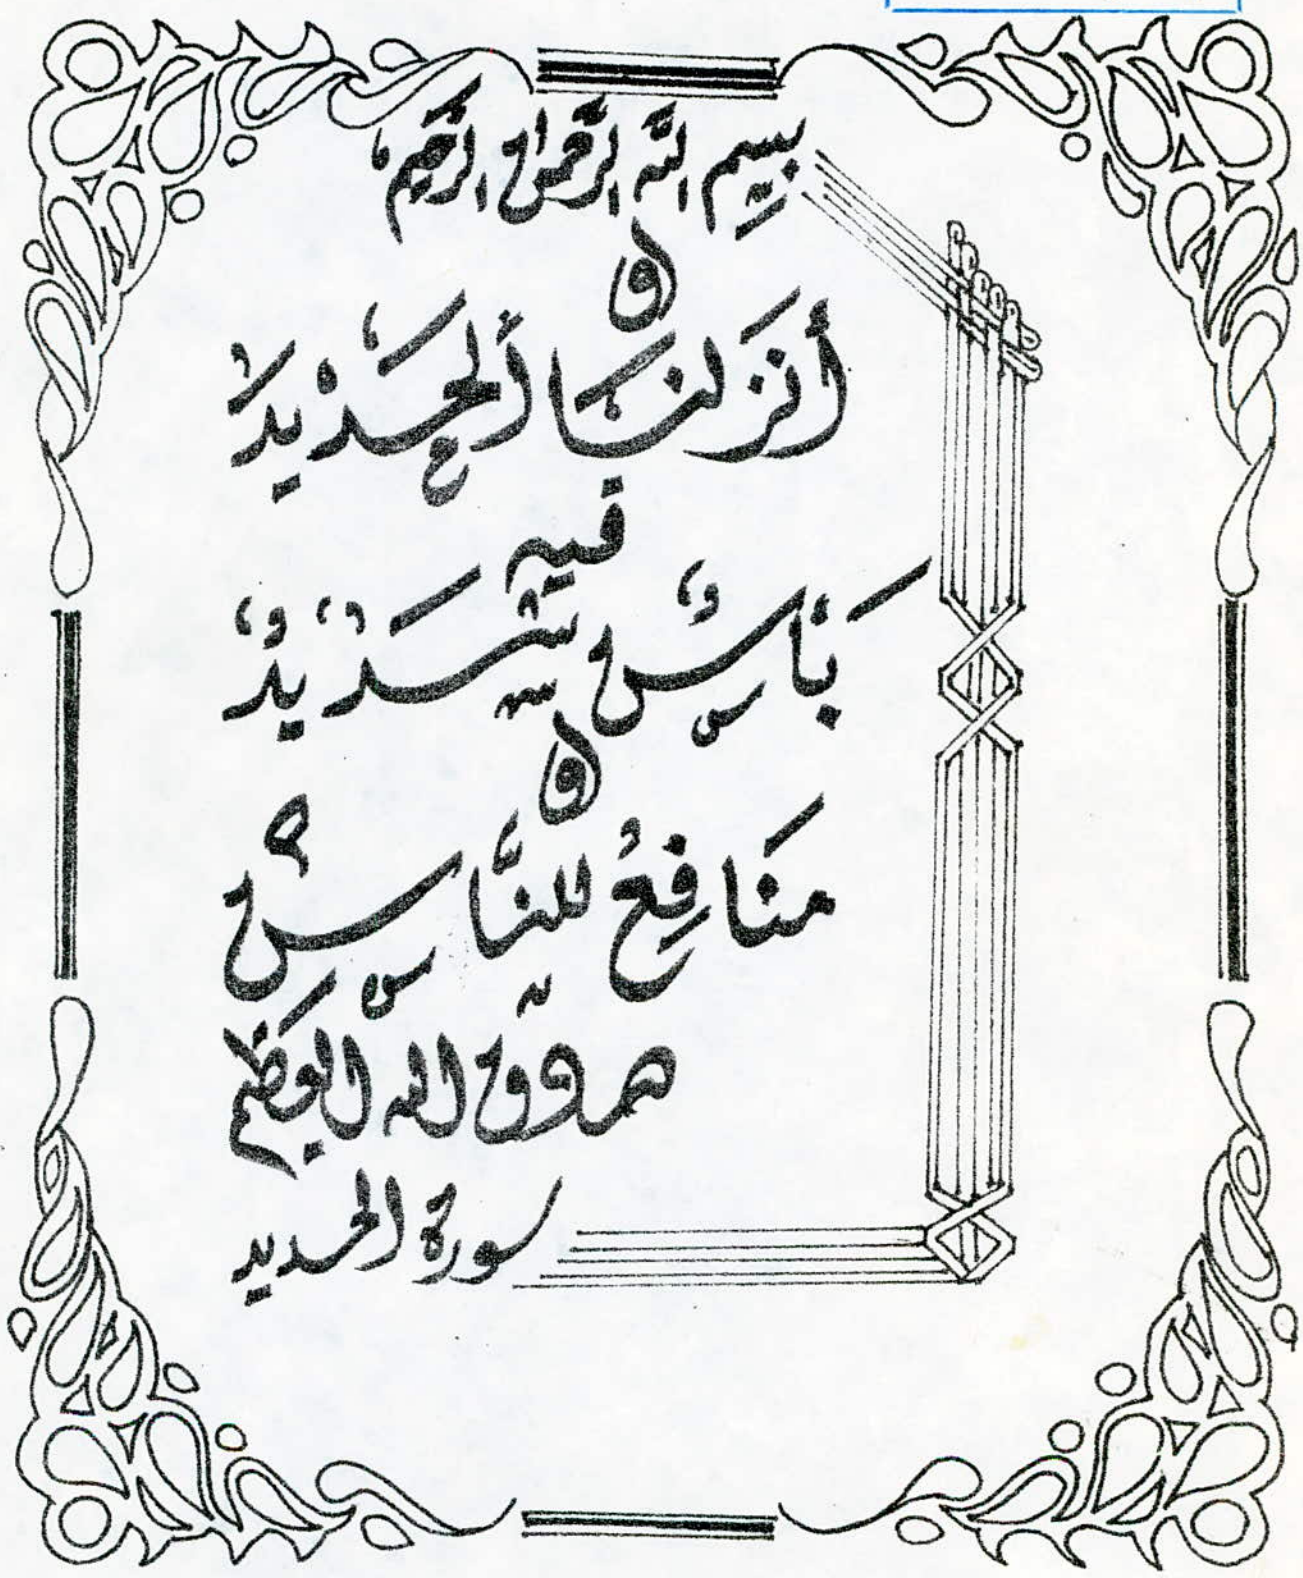 بسم الله الرحمن الرحيم
و
أنزلنا ألحديد
فيه
بَأسٌ شَدْيدٌ
و
مَنَافِعُ للِنَّاسِ
صدق الله العظيم
سورة الحديد